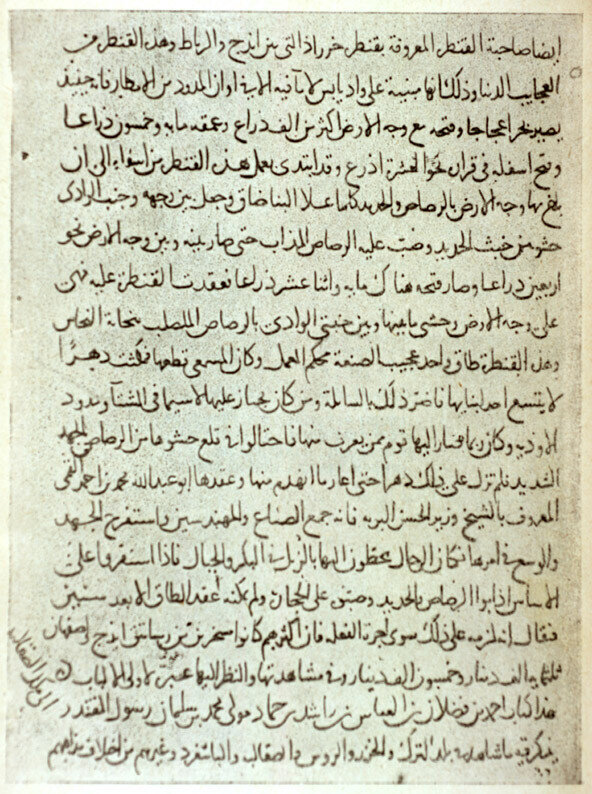 ايضا صاحبة القنطرة المعروفة بقنطرة خرزاذ التى بين ايذج والرباط وهذه القنطرة من
العجايب الدنيا وذلك انها مبنية على واد يابس لا ماء فيه الا فى اوان المدود من الامطار فانه حينئذ
يصير بحرا عجاجا وفتحه مع وجه الارض اكثر من الف ذراع وعمقه مايه وخمسون ذراعا
وفتح اسفله فى قراره نحو العشرة اذرع وقد ابتدى بعمل هذه القنطرة من اسفله الى ان
بلغ بها وجه الارض بالرصاص والحديد كلما علا البنا ضاق وجعل بين وجهه وجنب الوادى
حشو من خبث الحديد وصب عليه الرصاص المذاب حتى صار بينه وبين وجه الارض نحو
اربعين ذراعا وصار فتحه هناك مايه واثنا عشر ذراعا فعقدت القنطرة عليه فهى
على وجه الارض وحشى ما بينها وبين جنبتى الوادى بالرصاص المصلب بنحاتة النحاس
وهذه القنطرة طاق واحد عجيب الصنعة محكم العمل وكان المسمعى قطعها فمكثت دهرا
لا يتسع احد لبنايها فاضر ذلك بالسابلة ومن كان يجتاز عليها لا سيما فى الشتا ومدود
الاوديه وكان ربما صار اليها قوم ممن يقرب منها فاحتالوا فى قلع حشوها من الرصاص بالجهد
الشديد فلم تزل على ذلك دهرا حتى اعاد ما انهدم منها وعقدها ابو عبدالله محمد بن احمد القمى
المعروف بالشيخ وزير الحسن بن بويه فانه جمع الصناع والمهندسين واستفرغ الجهد
والوسع فى امرها فكان الرجال يحطون اليها بالزبل فى البكر والحبال فاذا استقروا على
الاساس اذابوا الرصاص والحديد وصبوه على الحجارة ولم يمكنه عقد الطاق الا بعد سنتين
فيقال انه لزمه على ذلك سوى اجرة الفعلة فان اكثرهم كانوا مسخرين من رساتيق ايذج واصفهان
ثلثمايه الف دينار وخمسون الف دينار وفى مشاهدتها والنظر اليها عبرة لاولى الالباب
هذا كتاب احمد بن فضلان بن العباس بن راشد بن حماد مولى محمد بن سليمان رسول المقتدر
الى ملك الصقالبة
يذكر فيه ما شاهد فى بلد الترك والخزر والروس والصقالبة والباشغرد وغيرهم من اختلاف مذاهبهم